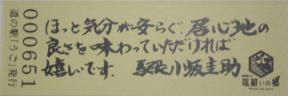 道の駅「うご」発行
000651
ほっと気分が安らぐ、居心地の
良さを味わっていただければ
嬉しいです。 駅長小坂圭助
端縫いの郷